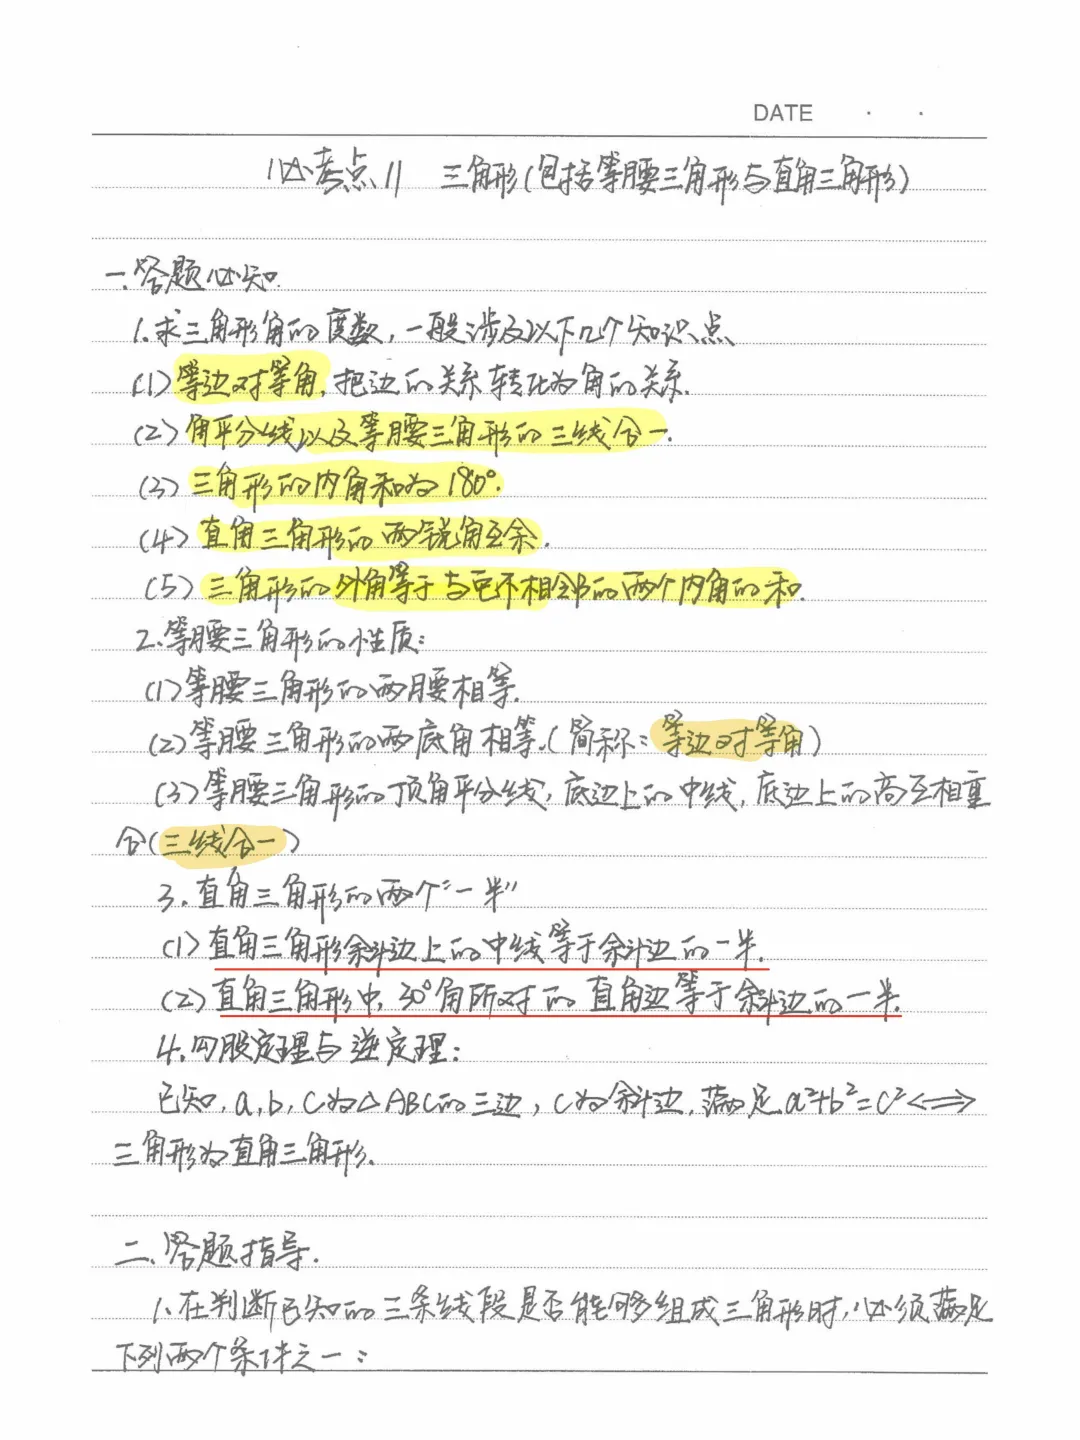 DATE · ·
必考点11 三角形(包括等腰三角形与直角三角形)
一.答题必知.
1.求三角形角的度数,一般涉及以下几个知识点
(1)等边对等角,把边的关系转化为角的关系.
(2)角平分线以及等腰三角形的三线合一.
(3)三角形的内角和为180°.
(4)直角三角形的两锐角互余.
(5)三角形的外角等于与它不相邻的两个内角的和.
2.等腰三角形的性质:
(1)等腰三角形的两腰相等.
(2)等腰三角形的两底角相等.(简称:等边对等角)
(3)等腰三角形的顶角平分线,底边上的中线,底边上的高互相重
合(三线合一)
3.直角三角形的两个“一半”
(1)直角三角形斜边上的中线等于斜边的一半.
(2)直角三角形中,30°角所对的直角边等于斜边的一半.
4.勾股定理与逆定理:
已知,a,b,c为△ABC的三边,c为斜边,满足a²+b²=c²<=>
三角形为直角三角形.
二.答题指导.
1.在判断已知的三条线段是否能够组成三角形时,必须满足
下列两个条件之一: